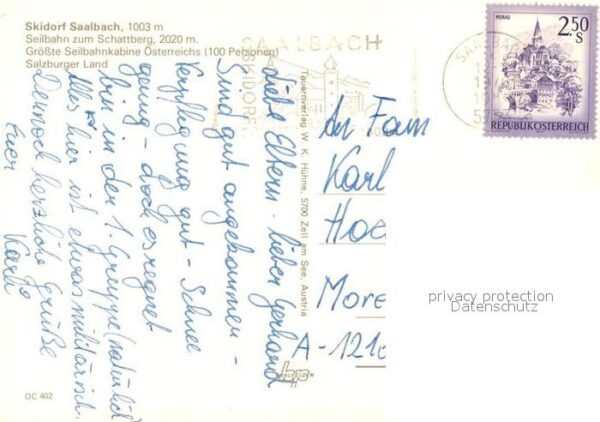 Skidorf Saalbach, 1003 m
Seilbahn zum Schattberg, 2020 m.
Größte Seilbahnkabine Österreichs (100 Personen)
Salzburger Land
SAALBACH
SKIDORF
MURAU
2.50
S
REPUBLIK ÖSTERREICH
Liebe Eltern, lieber Gerhard
Sind gut angekommen -
Verpflegung gut - Schnee
genug - doch es regnet
bin in der 1. Gruppe (natürlich)
Alles hier ist etwas militärisch.
Dennoch herzliche Grüße
Euer
Karli
Tauernverlag W. K. Hühne, 5700 Zell am See, Austria
An Fam
Karl
Hoe
More
A-1210
privacy protection
Datenschutz
OC 402